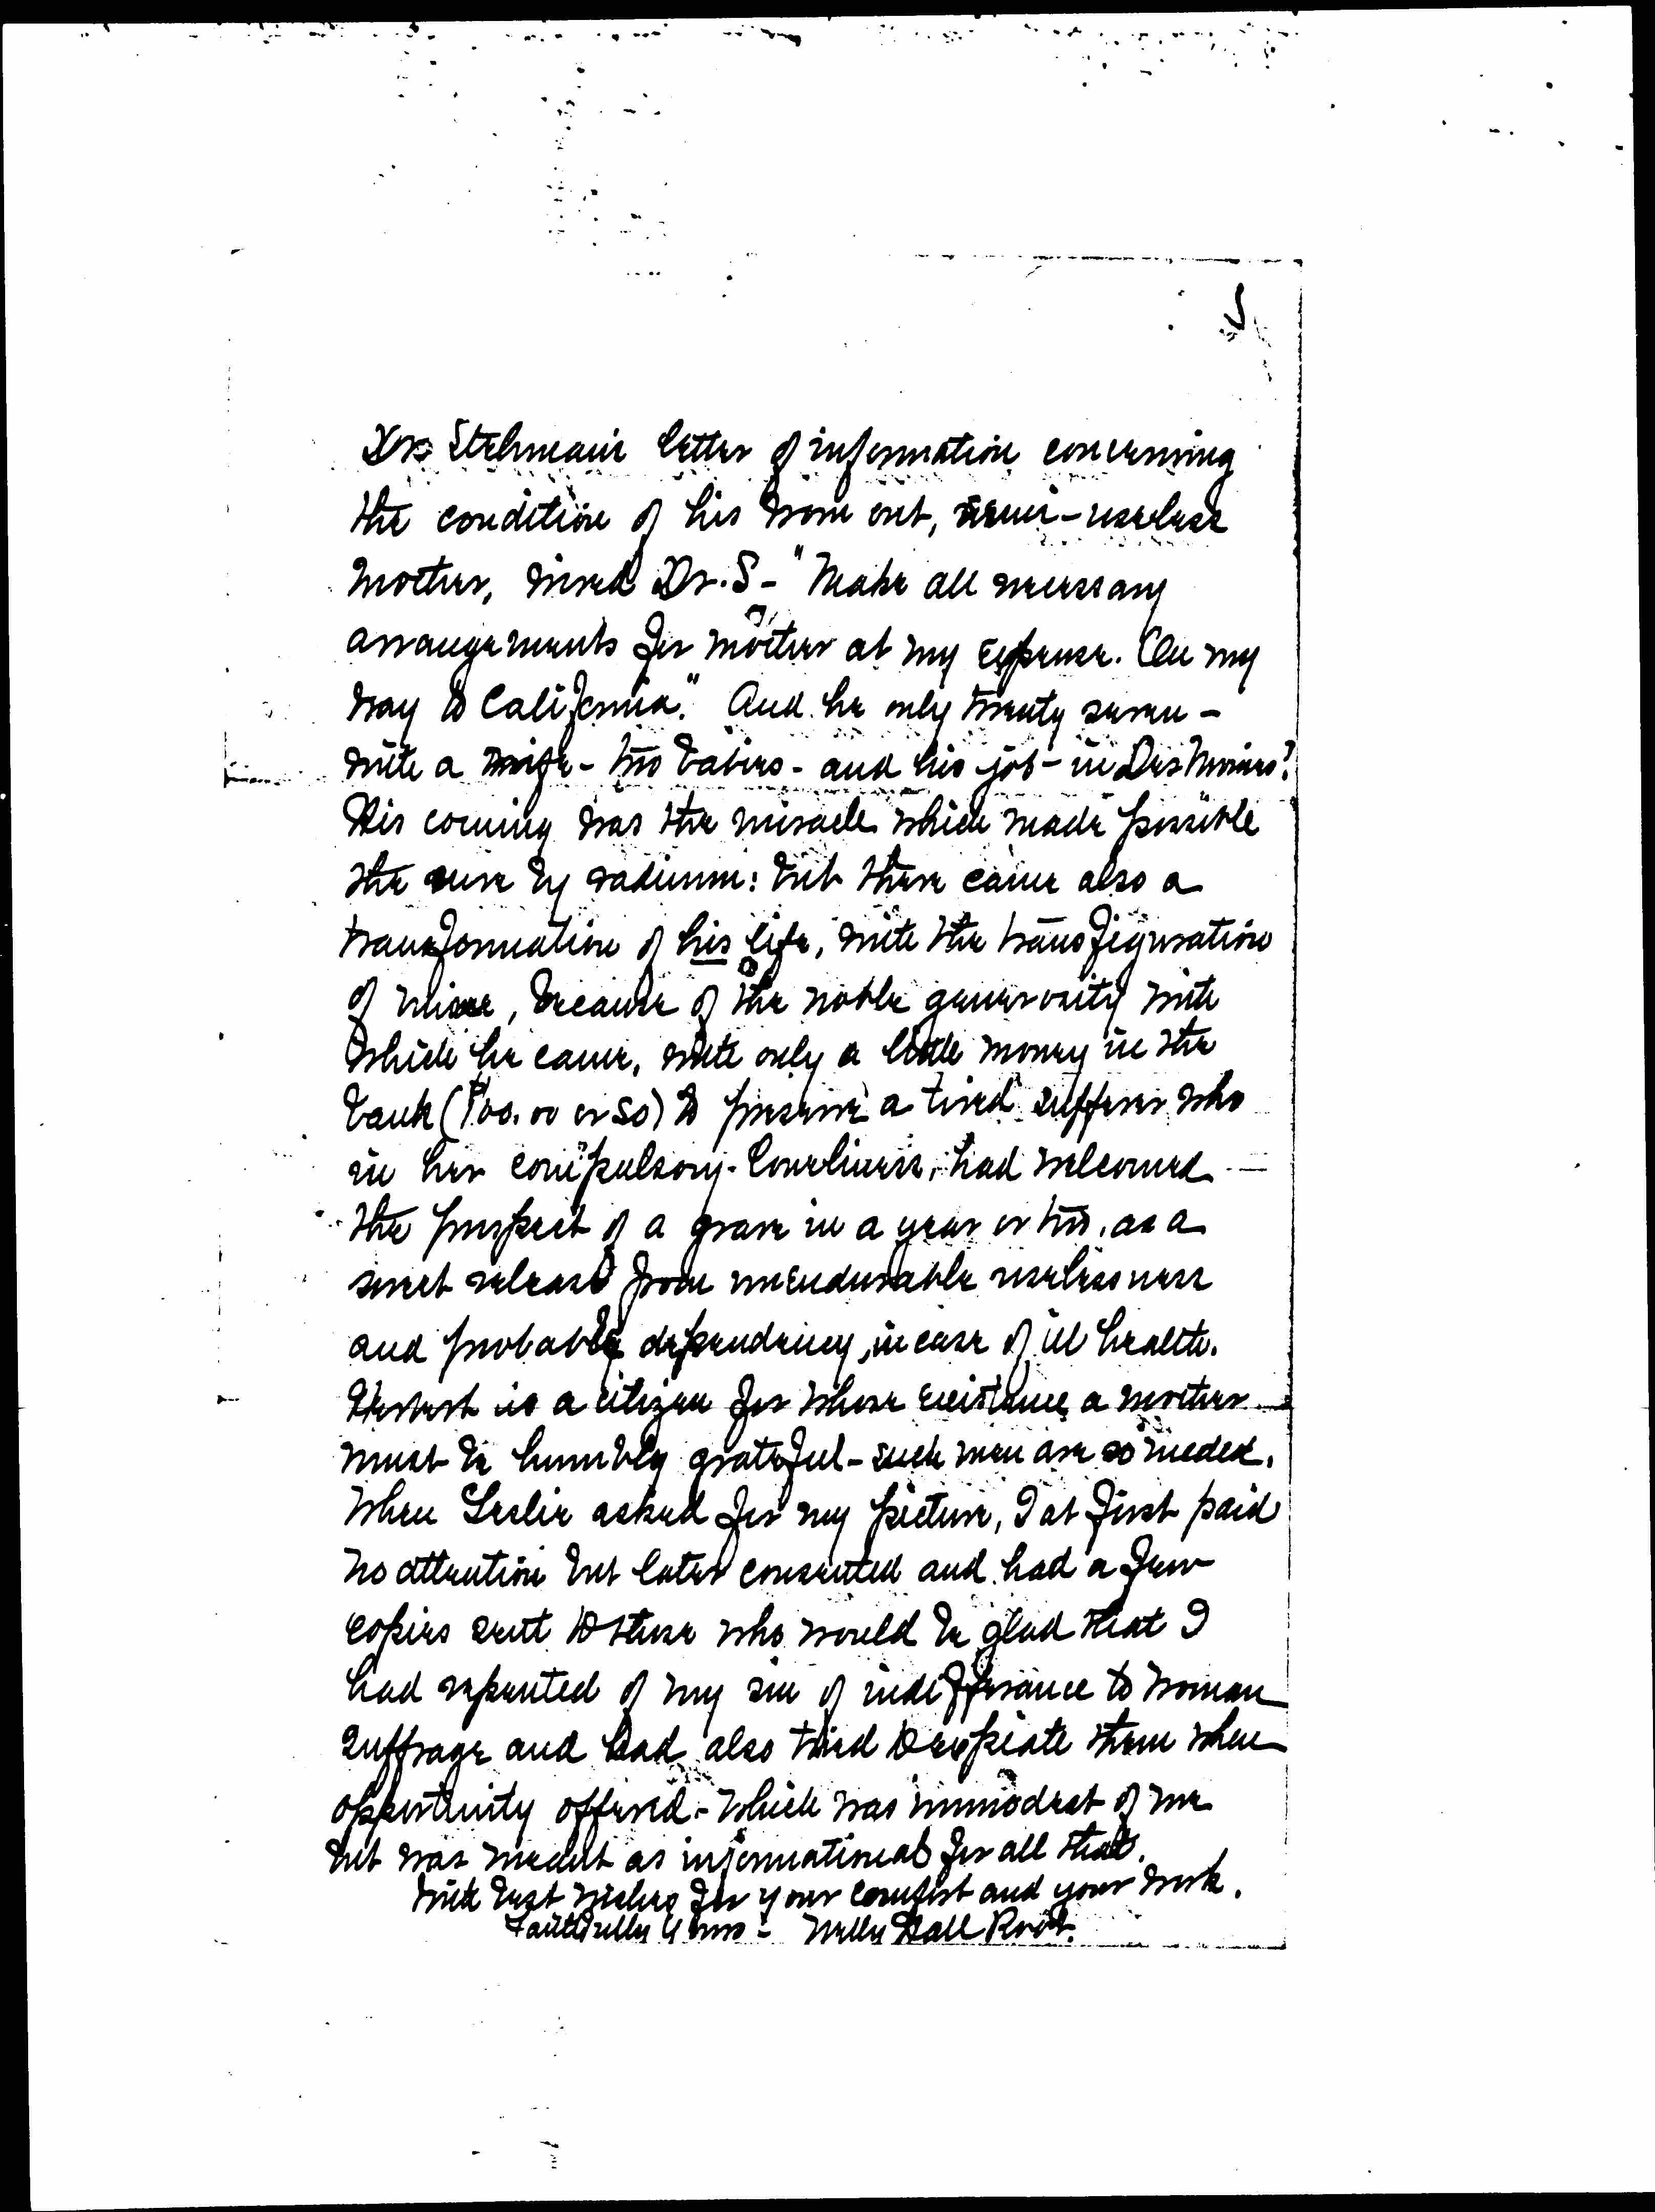 Dr. Stehman's letter of information concerning
the condition of his worn out, semi-useless
mother, wired Dr. S - "Make all necessary
arrangements for mother at my expense. On my
way to California." And he only twenty seven -
with a wife - two babies - and his job - in Des Moines?
His coming was the miracle which made possible
the cure by radium: but there came also a
transformation of his life, with the transfiguration
of mine, because of the noble generosity with
which he came, with only a little money in the
bank ($100.00 or so) to preserve a tired sufferer who
in her compulsory loneliness, had welcomed
the prospect of a grave in a year or two, as a
sweet release from unendurable uselessness
and probable dependency, in case of ill health.
Herbert is a citizen for whose existence a mother
must be humbly grateful - such men are so needed.
When Leslie asked for my picture, I at first paid
no attention but later consented and had a few
copies sent to those who would be glad that I
had repented of my sin of indifference to woman
suffrage and had also tried to expiate them when
opportunity offered - which was immodest of me
but was meant as informational for all that.
With best wishes for your comfort and your work.
Faithfully Yours - Nelly Hall Root.